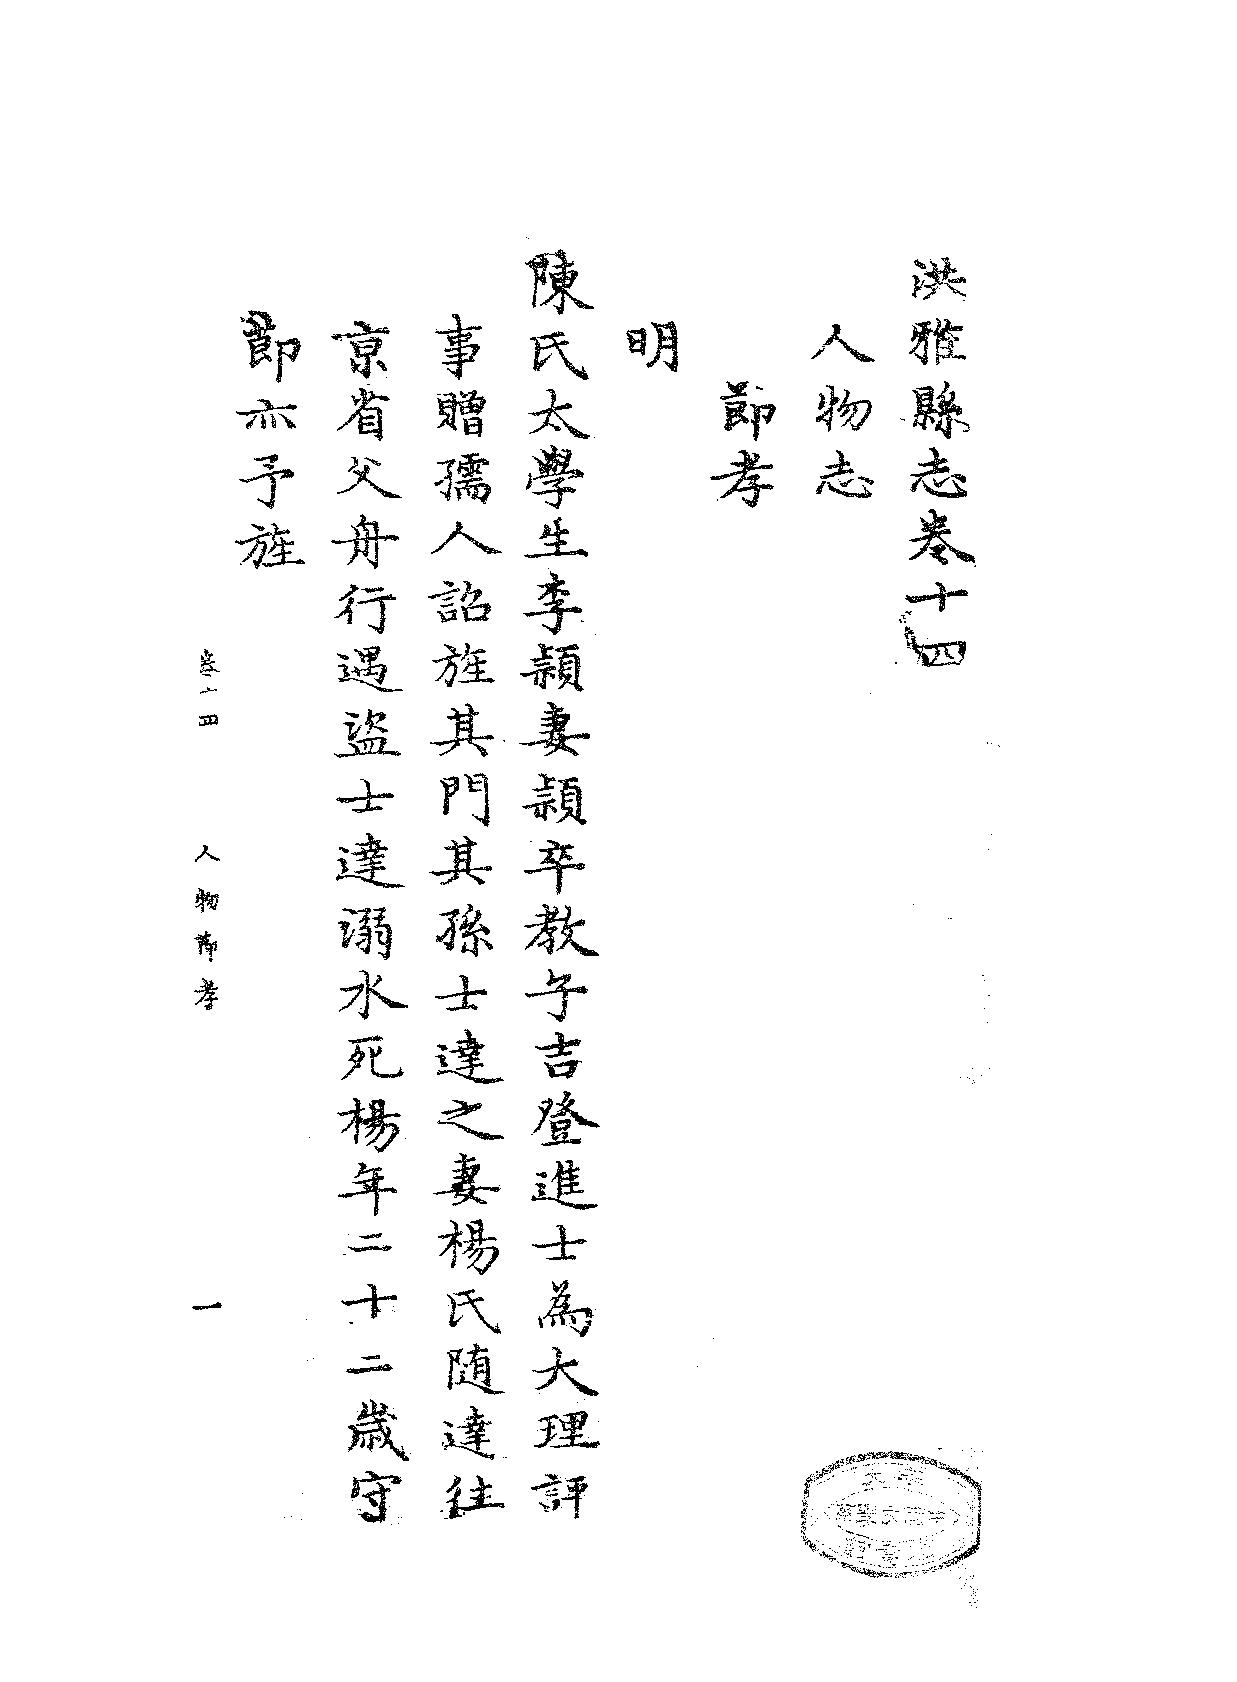 洪雅縣志卷十四
人物志
節孝
明
陳氏太學生李頴妻頴卒教子吉登進士為大理評
事贈孺人詔旌其門其孫士達之妻楊氏随達往
京省父舟行遇盜士達溺水死楊年二十二歲守
節亦予旌
卷十四
人物節孝
一